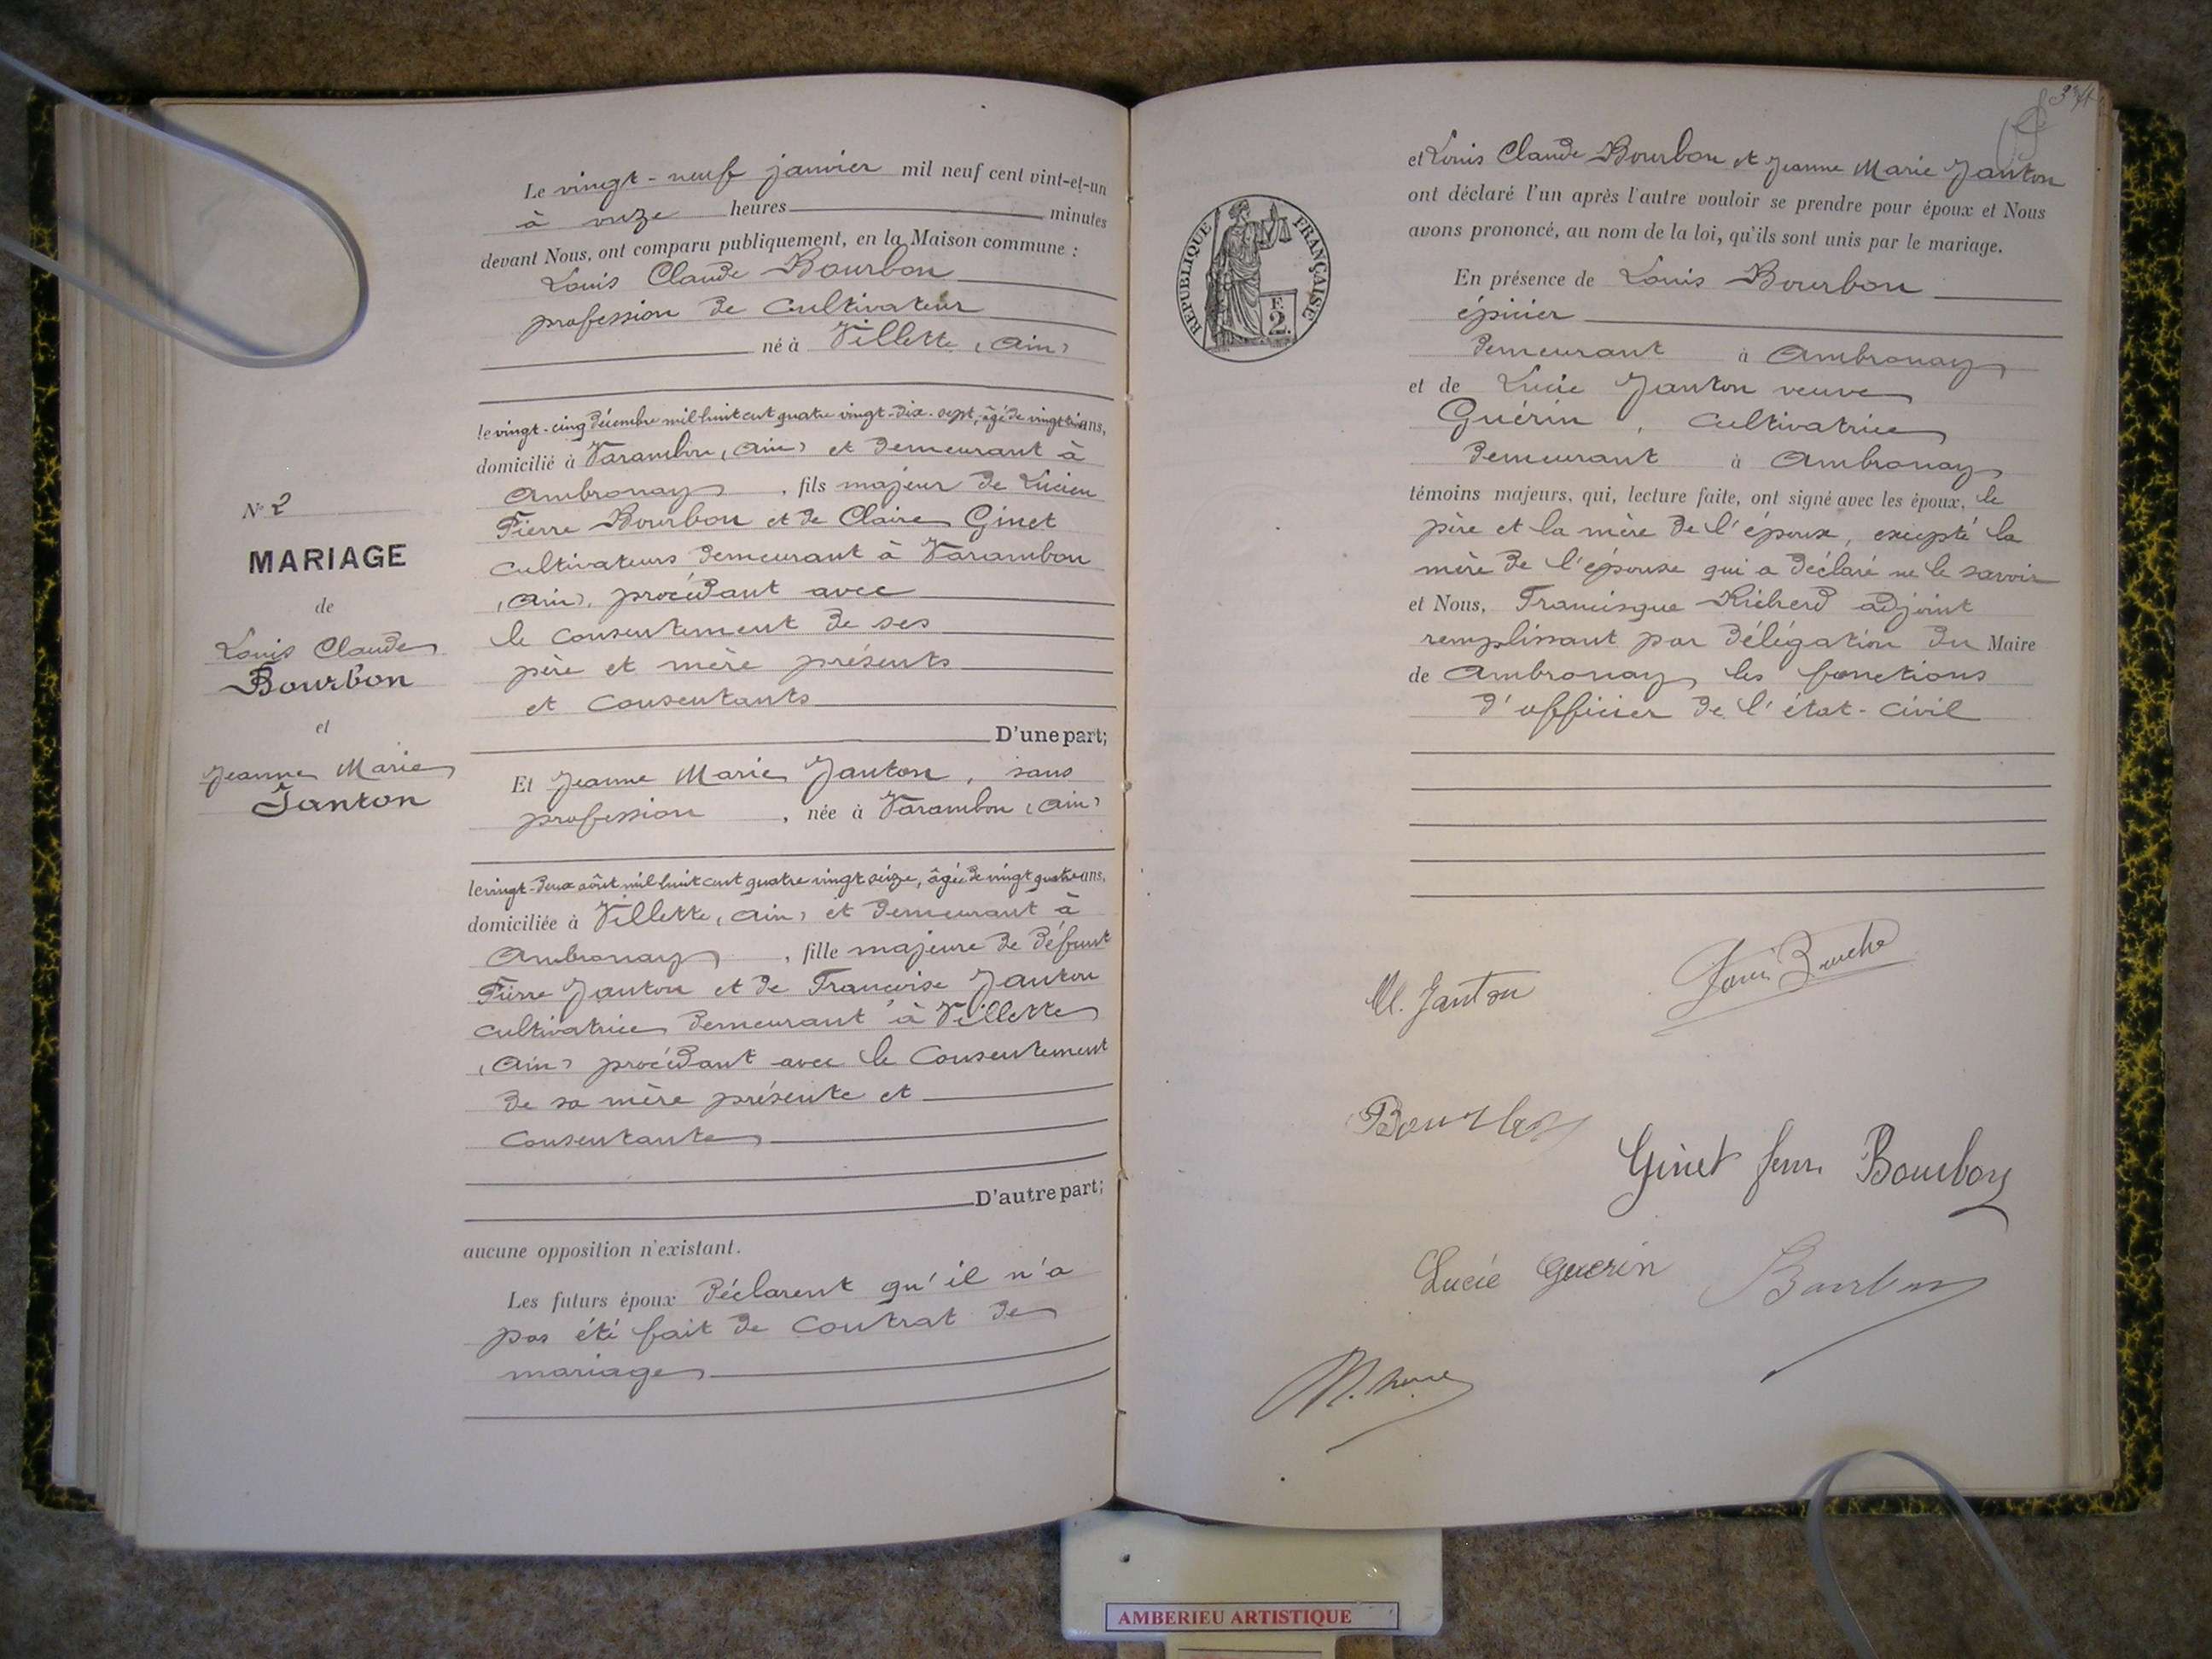 Le vingt-neuf janvier mil neuf cent vint-et-un
à onze heures minutes
devant Nous, ont comparu publiquement, en la Maison commune :
Louis Claude Bourbon
profession de cultivateur
né à Villette (Ain)
le vingt-cinq décembre mil huit cent quatre vingt-dix-sept, âgé de vingt trois ans,
domicilié à Varambon (Ain) et demeurant à
Ambronay, fils majeur de Lucien
Pierre Bourbon et de Claire Ginet
cultivateurs demeurant à Varambon
(Ain), procédant avec
le consentement de ses
père et mère présents
et consentants
D'une part;
N° 2
MARIAGE
de
Louis Claude
Bourbon
et
Jeanne Marie
Janton
Et Jeanne Marie Janton, sans
profession, née à Varambon (Ain)
le vingt-deux août mil huit cent quatre vingt seize, âgée de vingt quatre ans,
domiciliée à Villette (Ain) et demeurant à
Ambronay, fille majeure de défunt
Pierre Janton et de Françoise Janton
cultivatrice demeurant à Villette
(Ain) procédant avec le consentement
de sa mère présente et
consentante
D'autre part;
aucune opposition n'existant.
Les futurs époux déclarent qu'il n'a
pas été fait de contrat de
mariage
et Louis Claude Bourbon et Jeanne Marie Janton
ont déclaré l'un après l'autre vouloir se prendre pour époux et Nous
avons prononcé, au nom de la loi, qu'ils sont unis par le mariage.
REPUBLIQUE FRANÇAISE
F.
2.
En présence de Louis Bourbon
épicier
demeurant à Ambronay
et de Lucie Janton veuve
Guérin, cultivatrice
demeurant à Ambronay
témoins majeurs, qui, lecture faite, ont signé avec les époux, le
père et la mère de l'époux, excepté la
mère de l'épouse qui a déclaré ne le savoir
et Nous, Francisque Richerd adjoint
remplissant par délégation du Maire
de Ambronay les fonctions
d'officier de l'état-civil
M. Janton
Bourbon
Ginet fem. Bourbon
Lucie Guerin Bourbon
AMBERIEU ARTISTIQUE